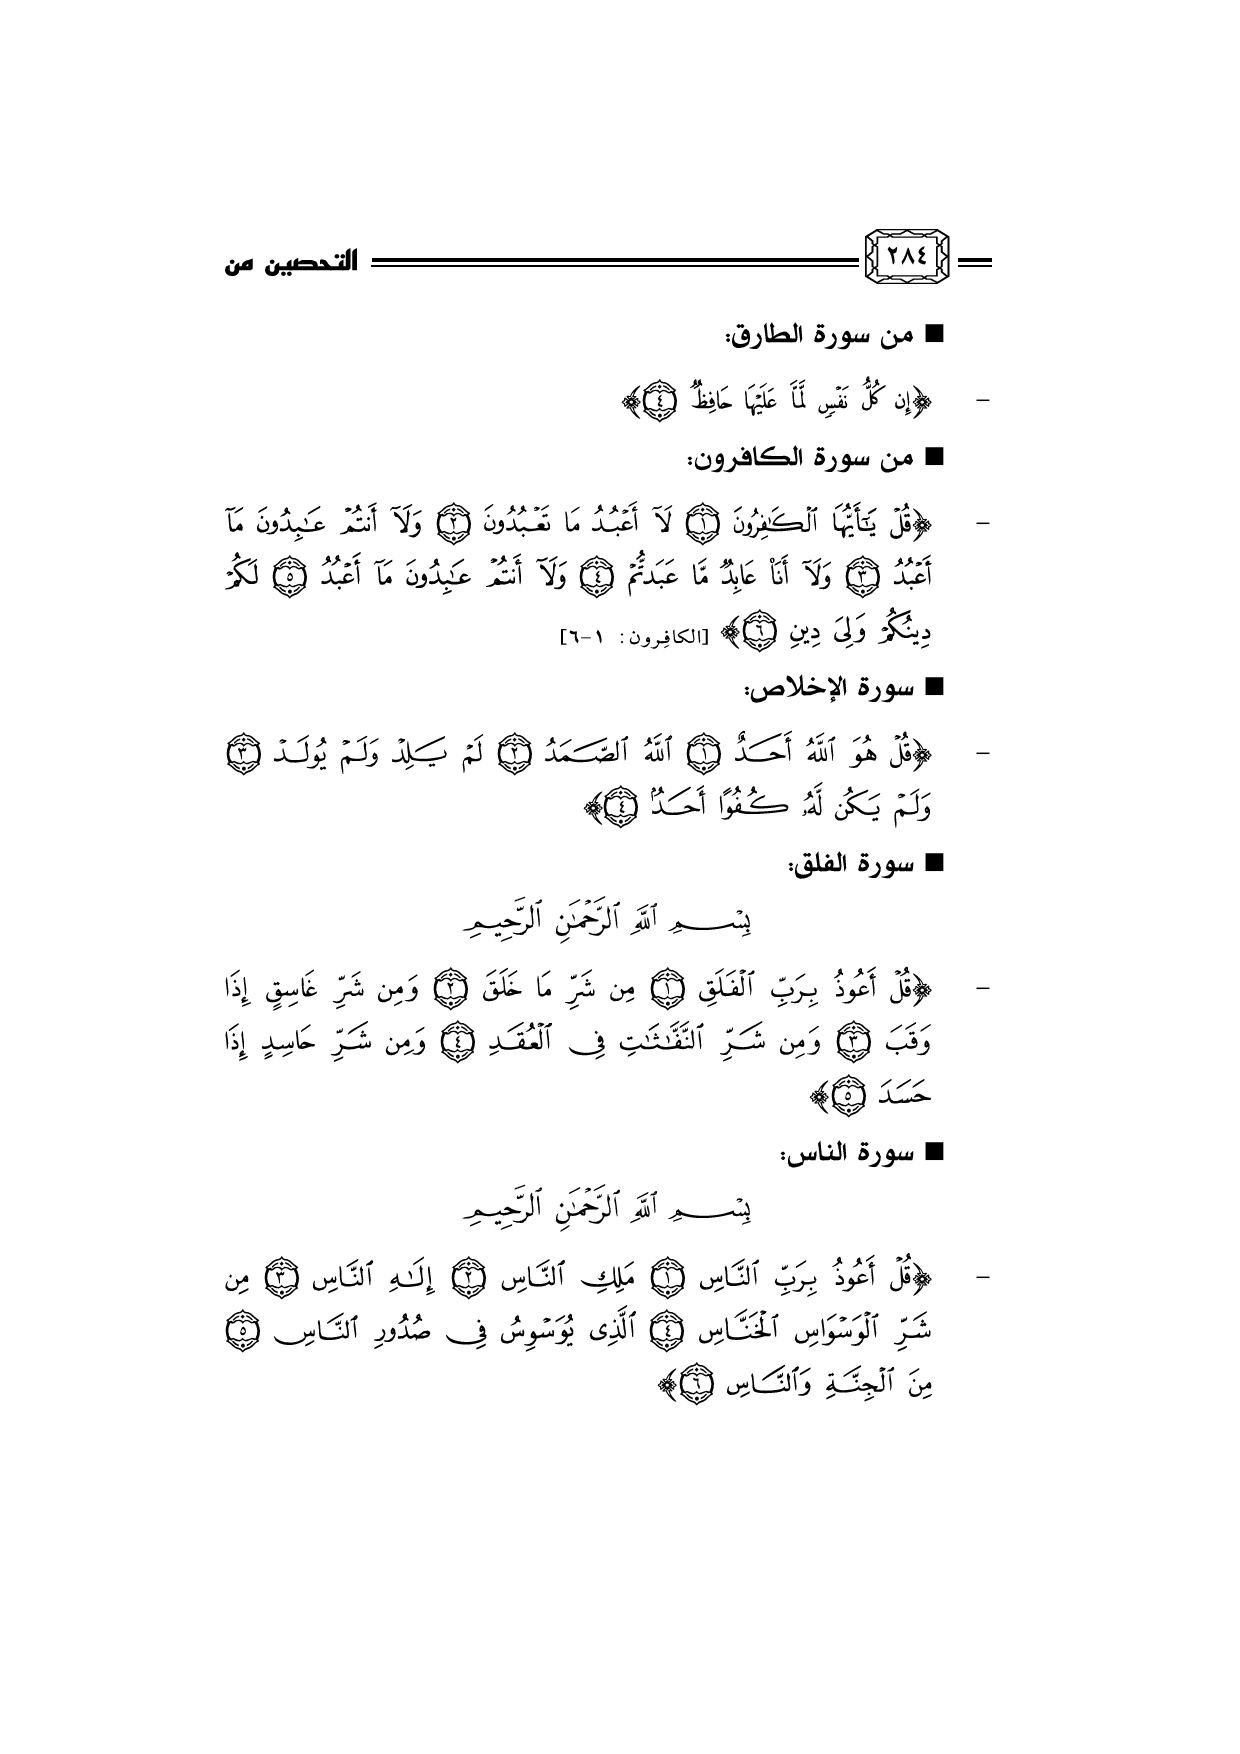 ٢٨٤ التحصين من
■ من سورة الطارق:
- ﴿إِن كُلُّ نَفْسٍ لَّمَّا عَلَيْهَا حَافِظٌ ٤﴾
■ من سورة الكافرون:
- ﴿قُلْ يَٰٓأَيُّهَا ٱلْكَٰفِرُونَ ١ لَآ أَعْبُدُ مَا تَعْبُدُونَ ٢ وَلَآ أَنتُمْ عَٰبِدُونَ مَآ
أَعْبُدُ ٣ وَلَآ أَنَا۠ عَابِدٌ مَّا عَبَدتُّمْ ٤ وَلَآ أَنتُمْ عَٰبِدُونَ مَآ أَعْبُدُ ٥ لَكُمْ
دِينُكُمْ وَلِىَ دِينِ ٦﴾ [الكافِرون: ١-٦]
■ سورة الإخلاص:
- ﴿قُلْ هُوَ ٱللَّهُ أَحَدٌ ١ ٱللَّهُ ٱلصَّمَدُ ٢ لَمْ يَلِدْ وَلَمْ يُولَدْ ٣
وَلَمْ يَكُن لَّهُۥ كُفُوًا أَحَدٌۢ ٤﴾
■ سورة الفلق:
بِسْمِ ٱللَّهِ ٱلرَّحْمَٰنِ ٱلرَّحِيمِ
- ﴿قُلْ أَعُوذُ بِرَبِّ ٱلْفَلَقِ ١ مِن شَرِّ مَا خَلَقَ ٢ وَمِن شَرِّ غَاسِقٍ إِذَا
وَقَبَ ٣ وَمِن شَرِّ ٱلنَّفَّٰثَٰتِ فِى ٱلْعُقَدِ ٤ وَمِن شَرِّ حَاسِدٍ إِذَا
حَسَدَ ٥﴾
■ سورة الناس:
بِسْمِ ٱللَّهِ ٱلرَّحْمَٰنِ ٱلرَّحِيمِ
- ﴿قُلْ أَعُوذُ بِرَبِّ ٱلنَّاسِ ١ مَلِكِ ٱلنَّاسِ ٢ إِلَٰهِ ٱلنَّاسِ ٣ مِن
شَرِّ ٱلْوَسْوَاسِ ٱلْخَنَّاسِ ٤ ٱلَّذِى يُوَسْوِسُ فِى صُدُورِ ٱلنَّاسِ ٥
مِنَ ٱلْجِنَّةِ وَٱلنَّاسِ ٦﴾